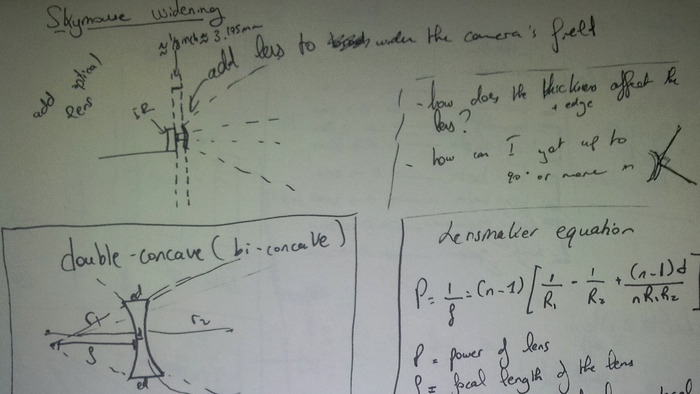 Skymouse widening
≈ 1/8 inch ≈ 3.175mm
add lens to widen the camera's field
add
optical
lens
IR
- how does the thickness affect the
+ edge
lens?
- how can I get up to
90° or more
double-concave (bi-concave)
ed
r1
r2
f
ed
Lensmaker equation
P = 1/f = (n-1) [ 1/R1 - 1/R2 + (n-1)d / nR1R2 ]
P = power of lens
f = focal length of the lens